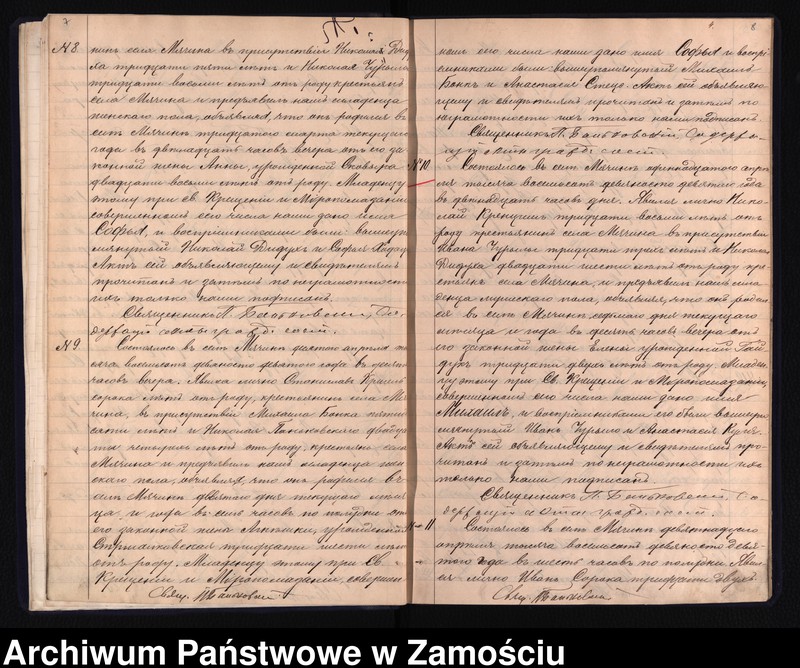 7
№ 8.
нинъ села Мячина въ присутствіи Николая Диду-
ха тридцати пяти лѣтъ и Николая Чурылы
тридцати восьми лѣтъ отъ роду крестьянъ
села Мячина и предъявилъ намъ младенца
женскаго пола, объявляя, что онъ родился въ
селѣ Мячинѣ тридцатого марта текущаго
года въ двѣнадцать часовъ вечера отъ его за-
конной жены Анны, урожденной
двадцати восьми лѣтъ отъ роду. Младенцу
этому при Св. Крещеніи и Мѵропомазаніи,
совершенномъ сего числа нами дано имя
Софья, и воспріемниками были: вышеупо-
мянутый Николай Дидухъ и Софья
Актъ сей объявляющему и свидѣтелямъ
прочитанъ и затѣмъ по неграмотности
ихъ только нами подписанъ.
Священникъ П. Со-
держащій акты гражд. сост.
№ 9
Состоялось въ селѣ Мячинѣ апрѣля ты-
сяча восемьсотъ девяносто девятого года въ
часовъ вечера. Явился лично Станиславъ
сорока лѣтъ отъ роду, крестьянинъ села Мя-
чина, въ присутствіи Михаила Бонка пятиде-
сяти лѣтъ и Николая двадца-
ти четырехъ лѣтъ отъ роду, крестьянъ села
Мячина и предъявилъ намъ младенца жен-
скаго пола, объявляя, что онъ родился въ
селѣ Мячинѣ девятого дня текущаго мѣся-
ца и года въ семь часовъ по полудни отъ
его законной жены урожденной
тридцати шести лѣтъ
отъ роду. Младенцу этому при Св.
Крещеніи и Мѵропомазаніи, соверше-
Свящ.
8.
номъ сего числа нами дано имя Софья и воспрі-
емниками были: вышеупомянутый Михаилъ
Бонкъ и Анастасія Стецъ. Актъ сей объявляю-
щему и свидѣтелямъ прочитанъ и затѣмъ по
неграмотности ихъ только нами подписанъ.
Священникъ П. Содержа-
щій акты гражд. сост.
№ 10
Состоялось въ селѣ Мячинѣ одиннадцатого апрѣ-
ля тысяча восемьсотъ девяносто девятого года
въ двѣнадцать часовъ дня. Явился лично Нико-
лай тридцати восьми лѣтъ отъ
роду крестьянинъ села Мячина въ присутствіи
Ивана Чурылы тридцати трехъ лѣтъ и Николая
Дидуха двадцати шести лѣтъ отъ роду кре-
стьянъ села Мячина, и предъявилъ намъ мла-
денца мужескаго пола, объявляя, что онъ родил-
ся въ селѣ Мячинѣ седьмого дня текущаго
мѣсяца и года въ десять часовъ вечера отъ
его законной жены Елены урожденной Гай-
дукъ тридцати двухъ лѣтъ отъ роду. Младен-
цу этому при Св. Крещеніи и Мѵропомазаніи,
совершенномъ сего числа нами дано имя
Михаилъ, и воспріемниками его были вышеупо-
мянутый Иванъ Чурыло и Анастасія
Актъ сей объявляющему и свидѣтелямъ про-
читанъ и затѣмъ по неграмотности ихъ
только нами подписанъ
Священникъ П. Со-
держащій акты гражд. сост.
№ 11
Состоялось въ селѣ Мячинѣ девятнадцатого
апрѣля тысяча восемьсотъ девяносто девя-
того года въ шесть часовъ по полудни. Явил-
ся лично Иванъ Сорока тридцати двухъ
Свящ.
Archiwum Państwowe w Zamościu